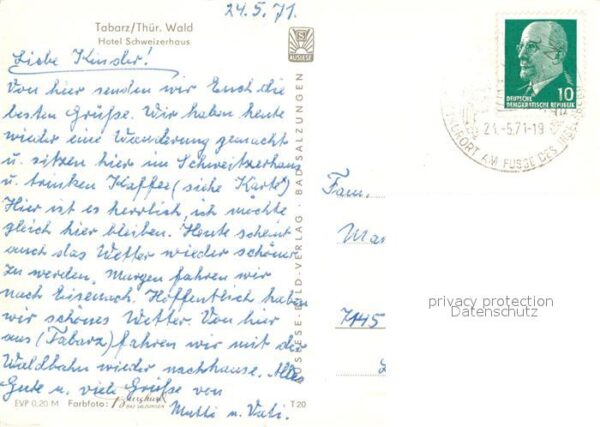 24.5.71.
Tabarz/Thür. Wald
Hotel Schweizerhaus
Liebe Kinder!
Von hier senden wir Euch die
besten Grüße. Wir haben heute
wieder eine Wanderung gemacht
u. sitzen hier im Schweitzerhaus
u. trinken Kaffee (siehe Karte)
Hier ist es herrlich, ich möchte
gleich hier bleiben. Heute scheint
auch das Wetter wieder schöner
zu werden. Morgen fahren wir
nach Eisenach. Hoffentlich haben
wir schönes Wetter. Von hier
aus (Tabarz) fahren wir mit der
Waldbahn wieder nachhause. Alles
Gute u. viele Grüße von
Mutti u. Vati.
EVP 0,20 M Farbfoto:
BAD SALZUNGEN
T 20
AUSLESE
AUSLESE-BILD-VERLAG · BAD SALZUNGEN
10
DEUTSCHE
DEMOKRATISCHE REPUBLIK
-5.71-19
AM FUSSE DES
Fam.
Ma
7145
privacy protection
Datenschutz